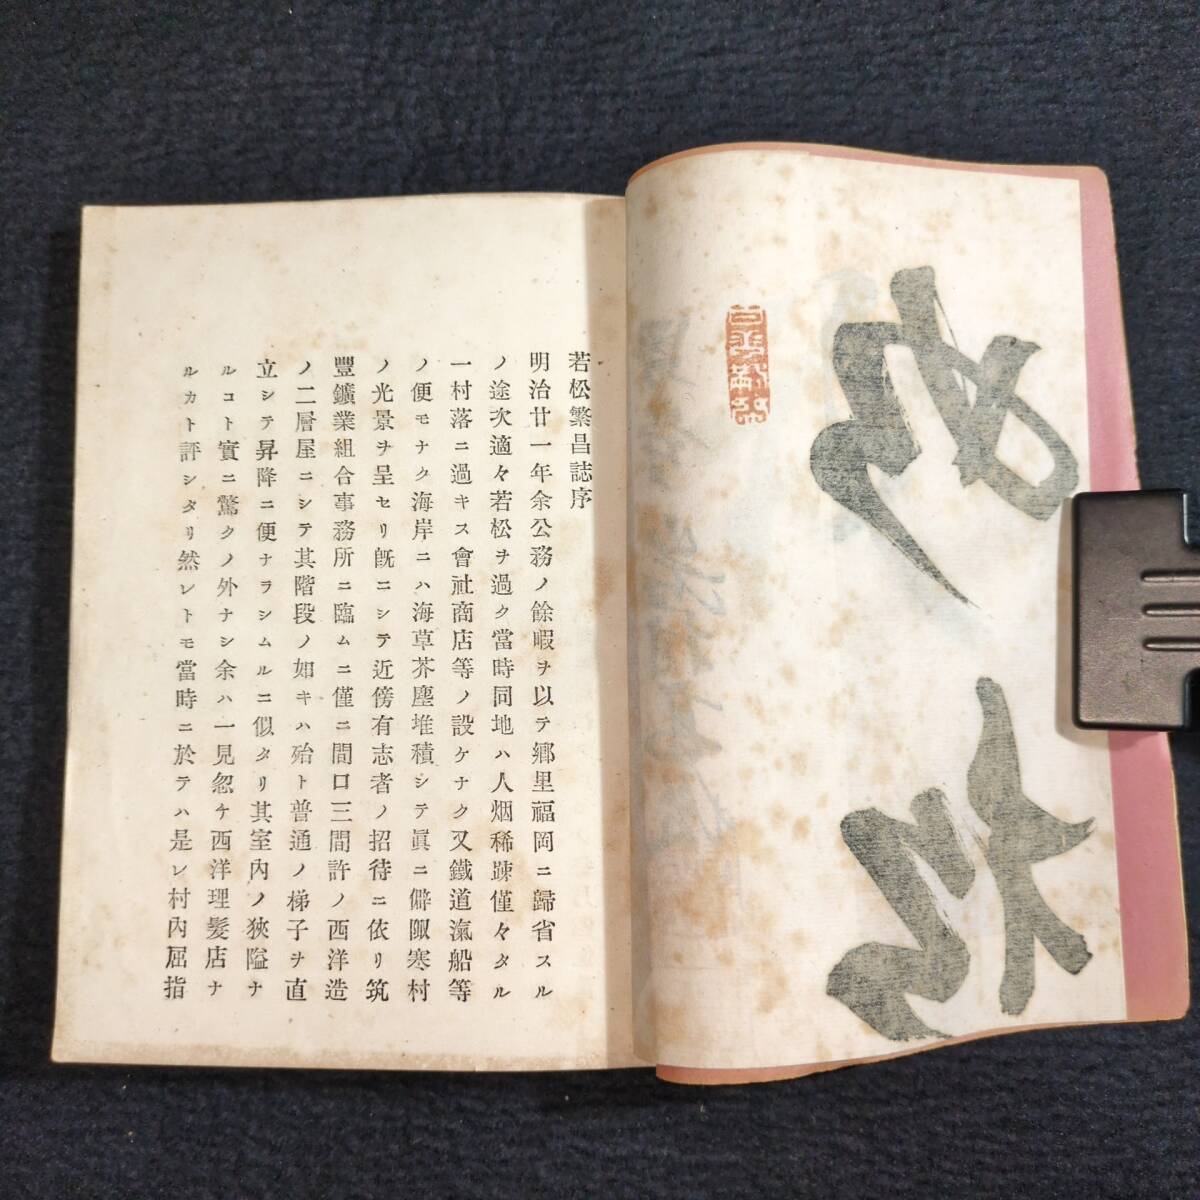 若松繁昌誌序
明治廿一年余公務ノ餘暇ヲ以テ鄕里福岡ニ歸省スル
ノ途次適々若松ヲ過ク當時同地ハ人烟稀疎僅々タル
一村落ニ過キス會社商店等ノ設ケナク又鐵道滊船等
ノ便モナク海岸ニハ海草芥塵堆積シテ眞ニ僻陬寒村
ノ光景ヲ呈セリ旣ニシテ近傍有志者ノ招待ニ依リ筑
豐鑛業組合事務所ニ臨ムニ僅ニ間口三間許ノ西洋造
ノ二層屋ニシテ其階段ノ如キハ殆ト普通ノ梯子ヲ直
立シテ昇降ニ便ナラシムルニ似タリ其室內ノ狹隘ナ
ルコト實ニ驚クノ外ナシ余ハ一見忽チ西洋理髮店ナ
ルカト評シタリ然レトモ當時ニ於テハ是レ村內屈指